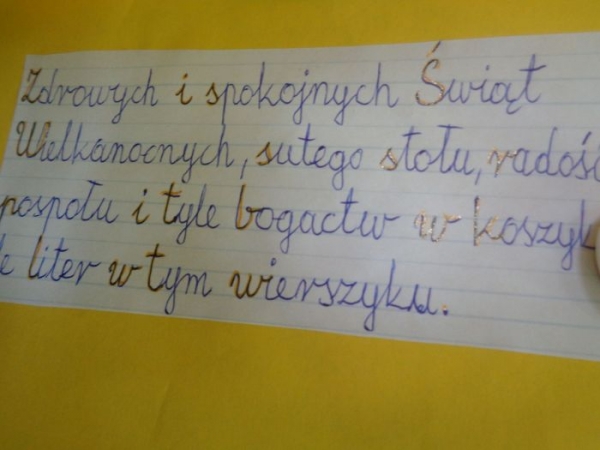 Zdrowych i spokojnych Świąt
Wielkanocnych, sutego stołu, radość
pospołu i tyle bogactw w koszyk
le liter w tym wierszyku.